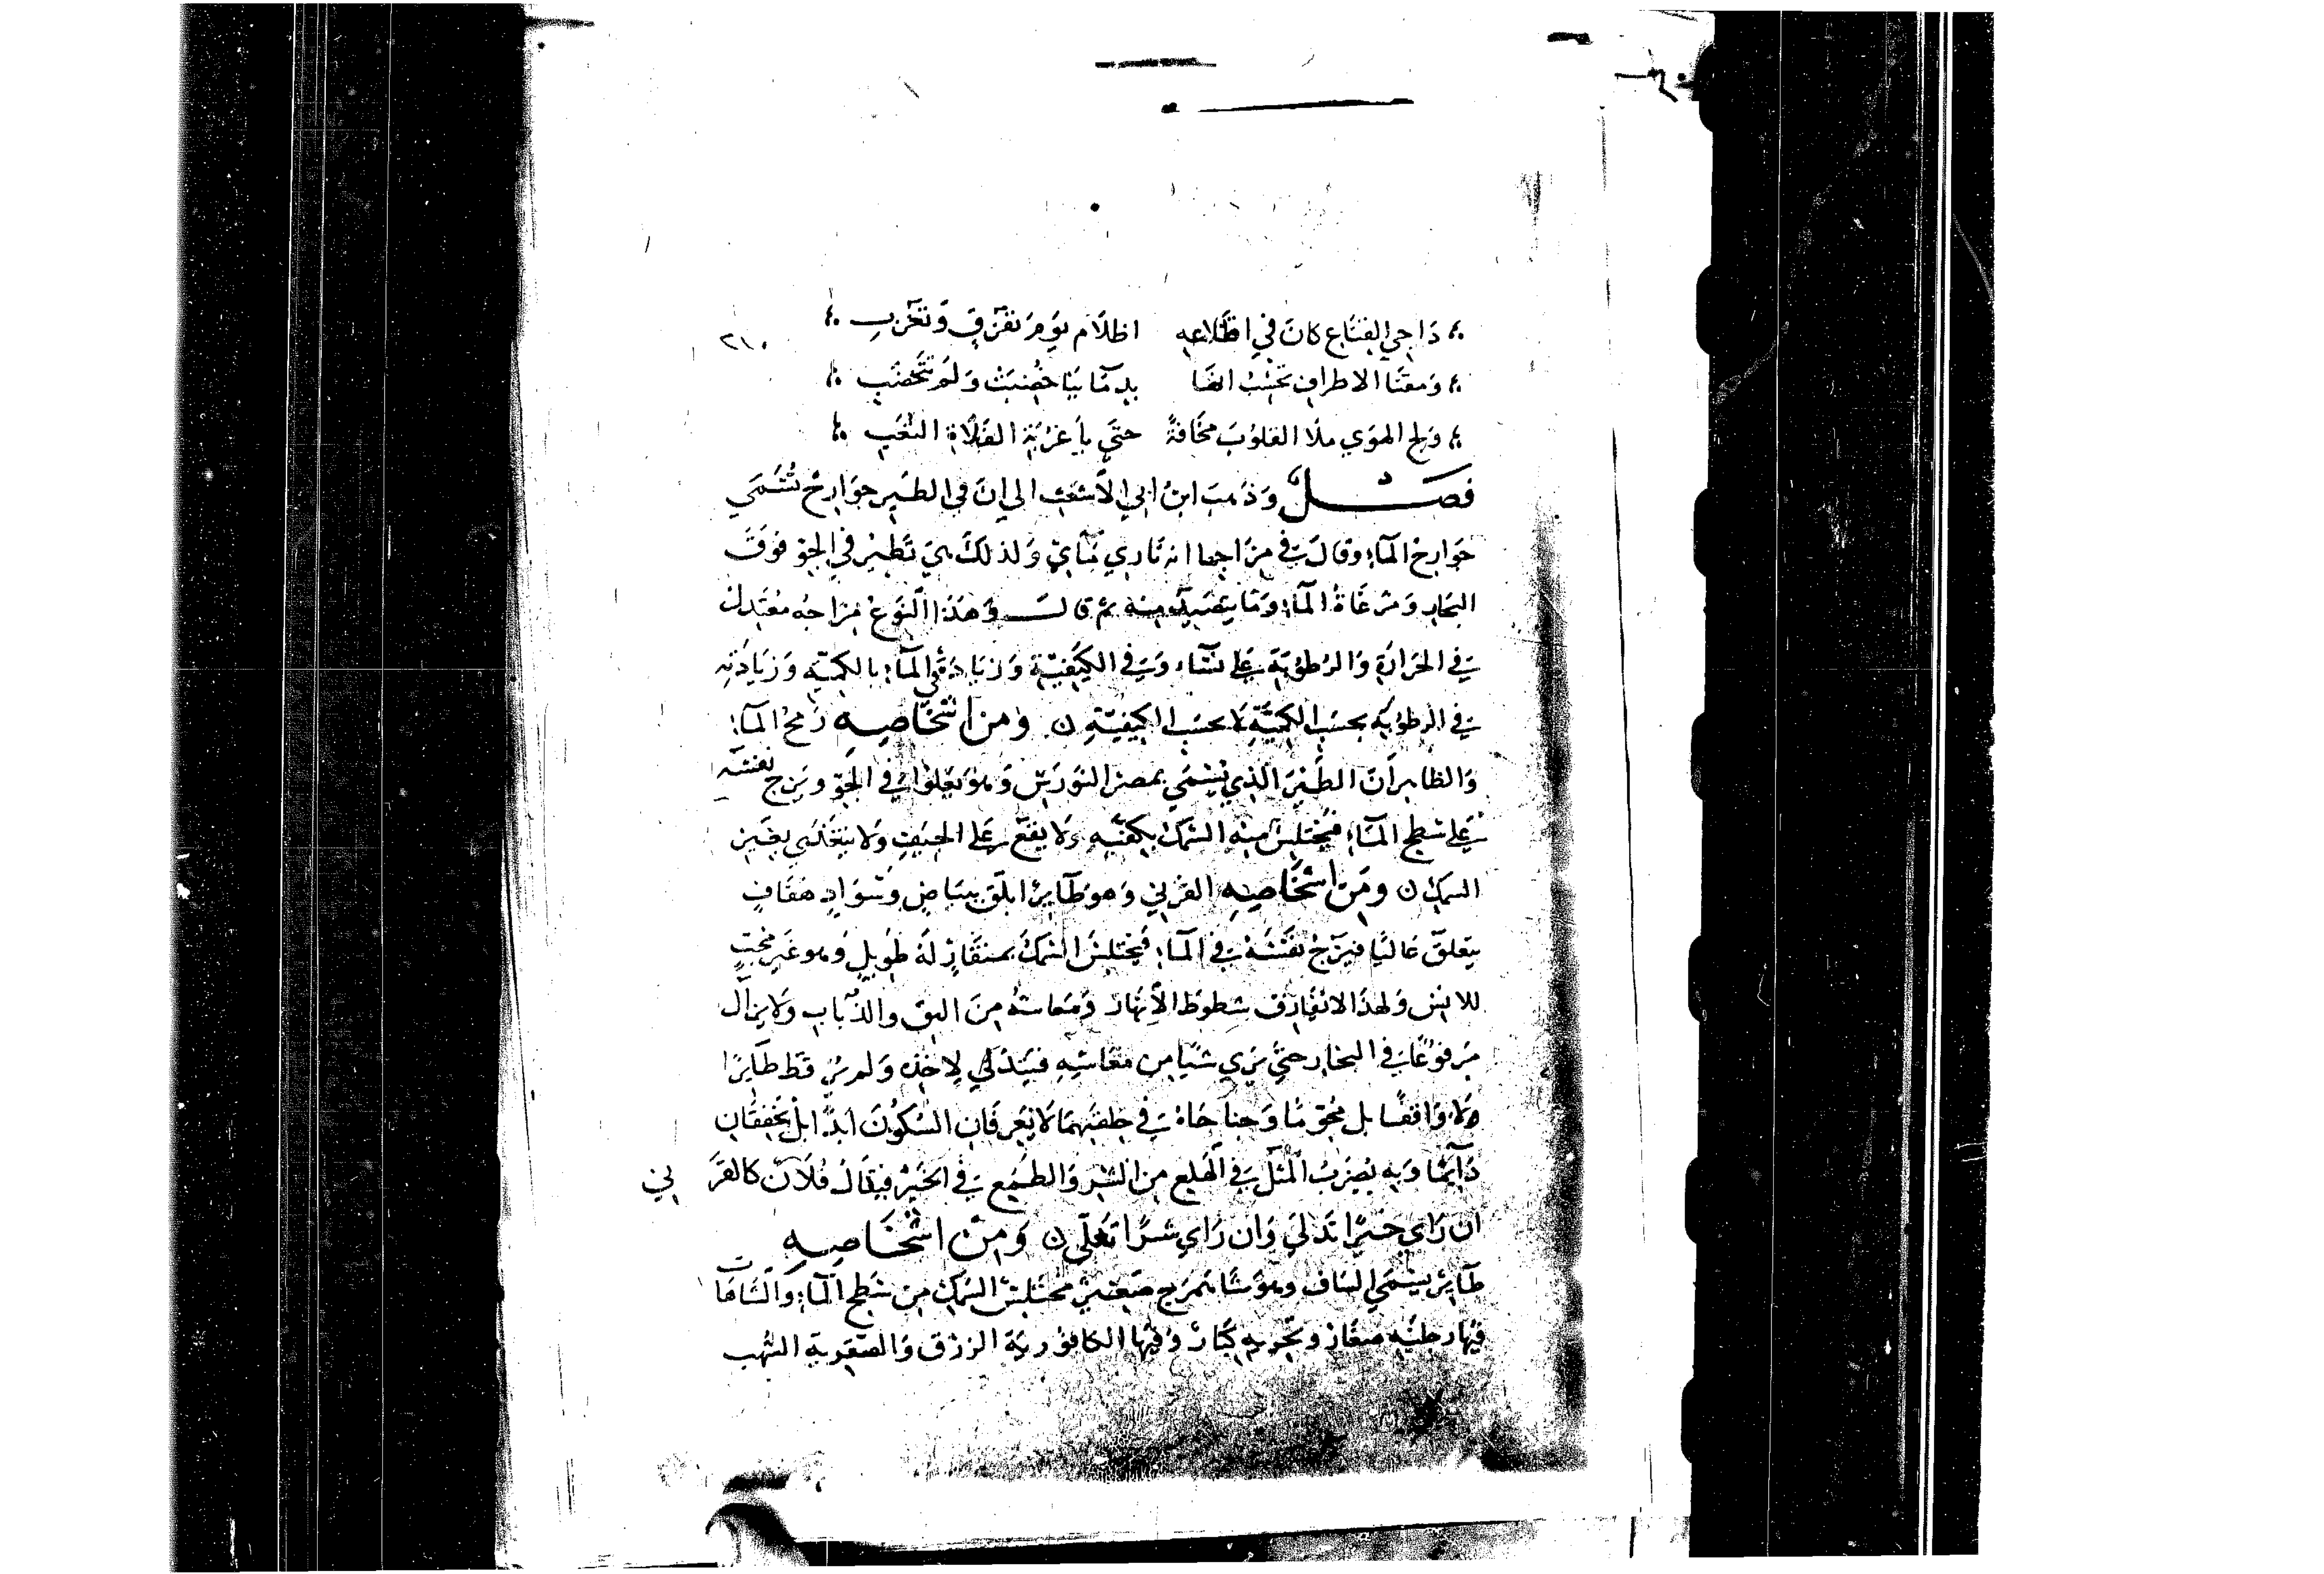 داجي القناع كان في اظلاعه اظلام يوم تفرق وتغرب
ومقنا الاطراف تحسب انها بدما بيا خضبت ولم تتخضب
ولج الهوي ملا القلوب مخافة حتي باغربة الفلاة النغب
٢١٠
فصل وذهب ابن ابي الاشعث الي ان في الطير جوارح تسمي
جوارح الماء وقال في مزاجها انه ناري مآيي ولذلك هي تطير في الجو فوق
البحار ومرعاة الماء وما يتصيده منه ثم قال وهذا النوع مزاجه معتدل
في الحرارة والرطوبة علي تساء وي في الكيفية وزيادة في الماء بالكمية وزيادته
في الرطوبة بحسب الكمية لا بحسب الكيفية ن ومن اشخاصه رمح الماء
والظاهر ان الطير الذي يسمي بمصر النورس وهو يعلوا في الجو ويزج نفسه
علي سطح الماء فيختلس منه السمك بكفيه ولا يقع علي الجيف ولا يتغذي بغير
السمك ن ومن اشخاصه القرلي وهو طآير ابلق ببياض وسواد هفاف
يتعلق عاليا فيزج نفسه في الماء فيختلس السمك بمنقار له طويل وهو غير محب
للانس ولهذا لا تفارق شطوط الانهار ومعاشه من البق والذباب ولا يزال
مرفوعا في البخار حتي يري شيا من معاشه فيتدلي لاخذه ولم ير قط طآيرا
ولا واقفا بل محوما وجناحاه في خلقتهما لا يعرفان السكون ابدا بل يخفقان
دآيما وبه يضرب المثل في الهلع من الشر والطمع في الخير فيقال فلان كالقرلي
ان راي خيرا تدلي وان راي شرا تعلي ن ومن اشخاصه
طآير يسمي الساف وهو شاهمرج صغير مختلس السمك من سطح الماء والشاهات
فيها رطبه صغار وبحريه كبار وفيها الكافورية الزرق والصقرية الشهب